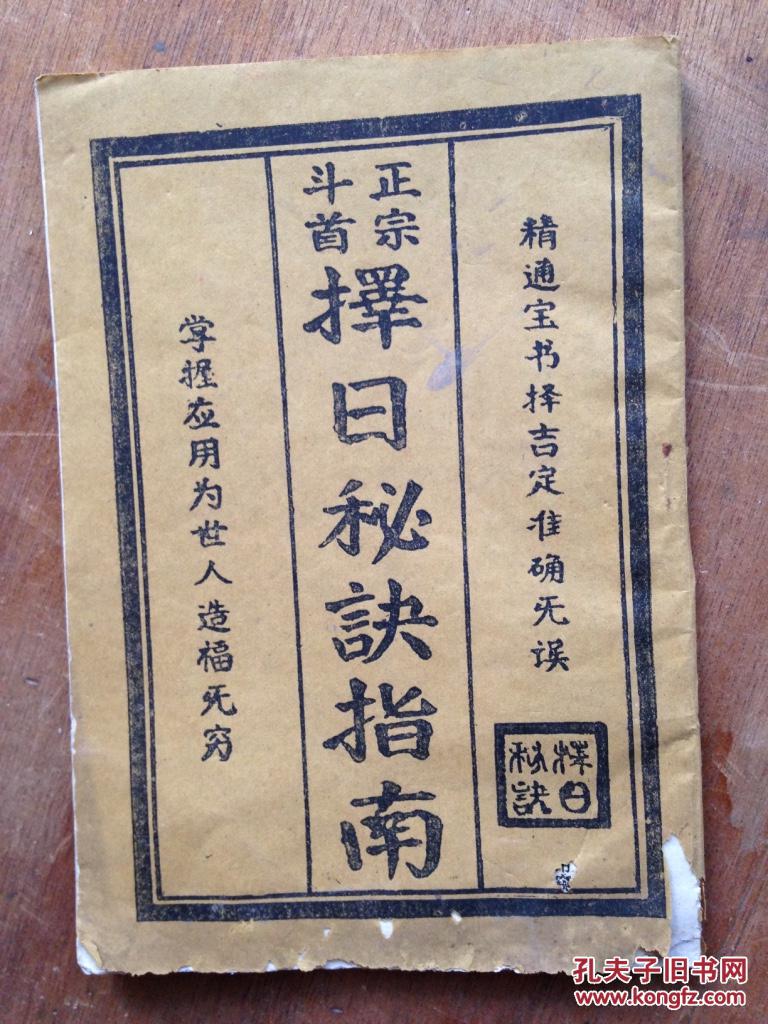 精通宝书择吉定准确旡误
择日
秘诀
正宗
斗首
擇日秘訣指南
掌握应用为世人造福旡穷
孔夫子旧书网
www.kongfz.com